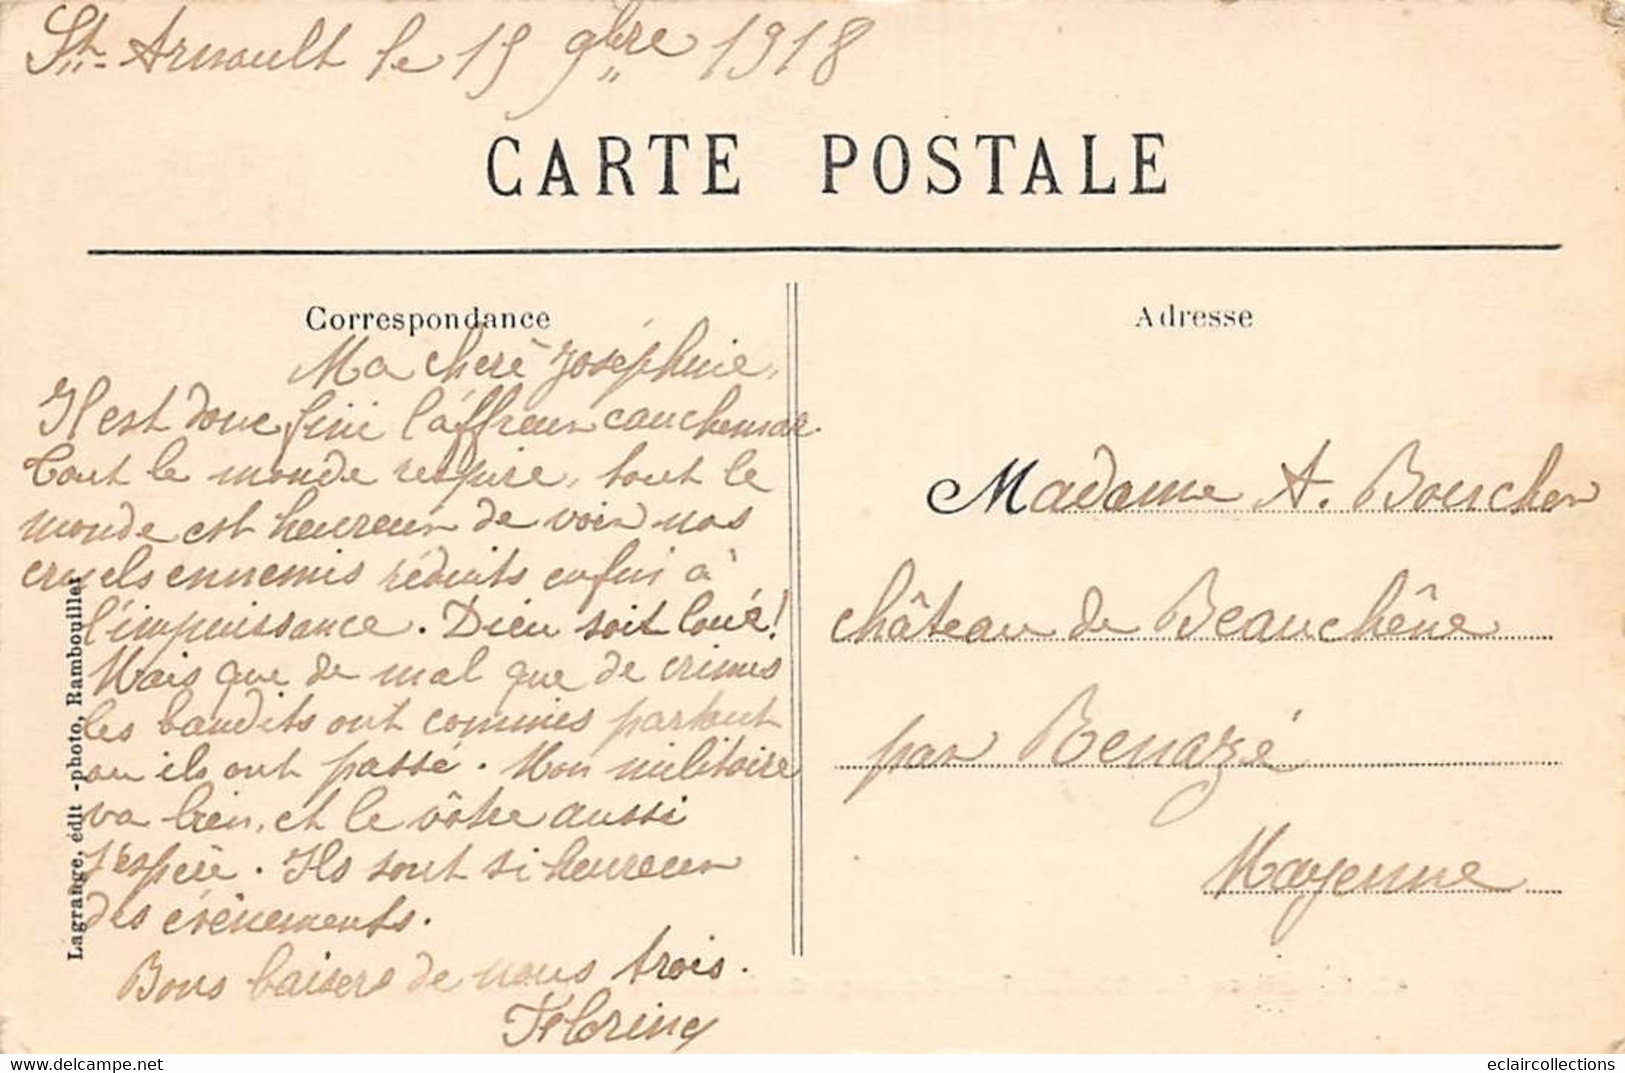 St. Arnoult le 15 9bre 1918
CARTE POSTALE
Correspondance
Adresse
Ma chère Joséphine,
Il est donc fini l'affreux cauchemar.
Tout le monde respire, tout le
monde est heureux de voir nos
cruels ennemis réduits enfin à
l'impuissance. Dieu soit loué!
Mais que de mal que de crimes
les bandits ont commis partout
ou ils ont passé. Mon militaire
va bien, et le vôtre aussi
j'espère. Ils sont si heureux
des évènements.
Bons baisers de nous trois.
Madame A.
château de Beauchêne
par Renazé
Mayenne
Lagrange, édit -photo, Rambouillet
http://www.delcampe.net
eclaircollections